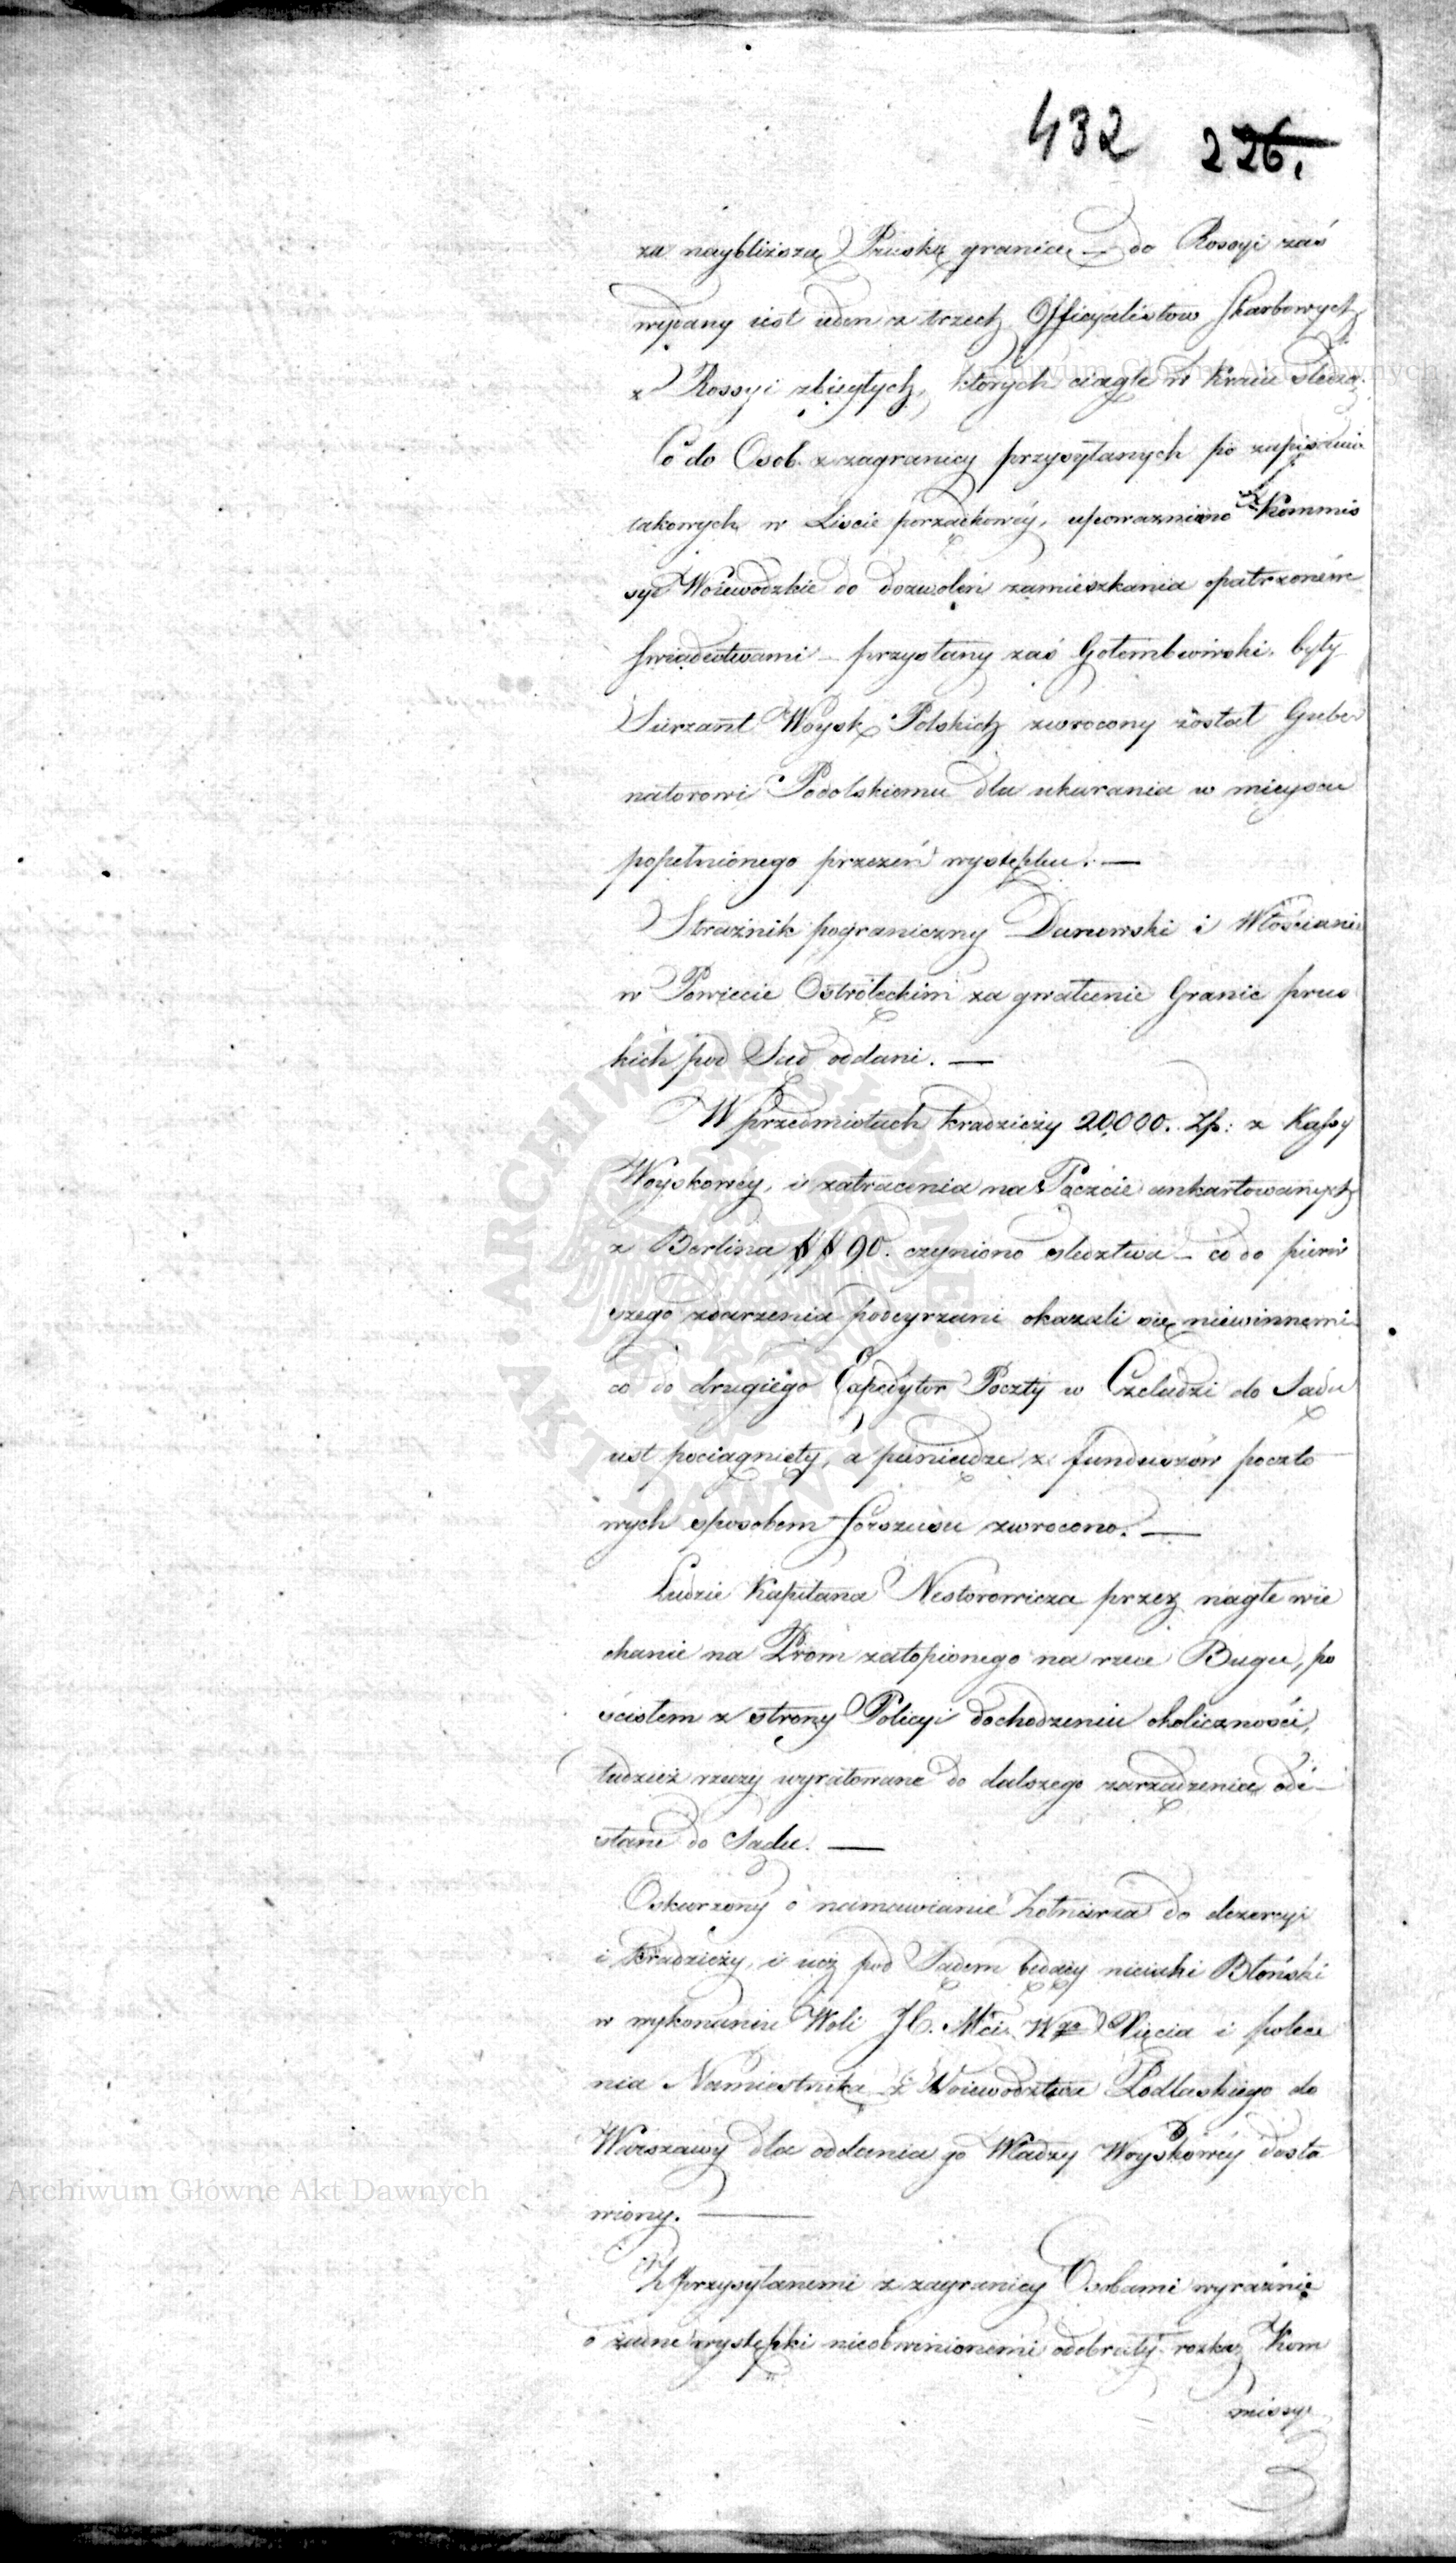 432 226.
za naybliższą Pruską granicę – do Rossyi zaś
wydany iest ieden z trzech Officyalistow Skarbowych
z Rossyi zbiegłych, ktorych ciągle w Kraiu śledzą.
Co do Osob z zagranicy przysyłanych po zapisaniu
takowych w Liscie porządkowéy, upoważniono Kommis
sye Woiewodzkie do dozwoleń zamieszkania opatrzoném
świadectwami – przysłany zaś Gołembiowski były
Surżant Woysk Polskich zwrocony został Guber
natorowi Podolskiemu dla ukarania w mieyscu
popełnionego przezeń występku. —
Strażnik pograniczny Danowski i Włościanie
w Powiecie Ostrołęckim za gwałcenie Granic prus
kich pod Sąd oddani. —
W przedmiotach kradzieży 20,000. Złp: z Kassy
Woyskowéy, i zatracenia na Poczcie ankartowanych
z Berlina 90. czyniono śledztwa – co do pierw
szego zdarzenia podeyrzani okazali się niewinnemi
co do drugiego Expedytor Poczty w Czeladzi do Sądu
iest pociągnięty, a pieniądze z funduszów poczto
wych sposobem forszusu zwrocono. —
Ludzie Kapitana Nestorowicza przez nagłe wie
chanie na Prom zatopionego na rzece Bugu, po
ścisłem z strony Policyi dochodzeniu okoliczności,
tudzież rzeczy wyratowane do dalszego zarządzenia ode-
słane do Sądu. —
Oskarzony o namawianie Żołnierza do dezercyi
i kradzieży, i iuż pod Sądem będący nieiaki Błoński
w wykonaniu Woli J. C. Mći Wgo Xięcia i polece
nia Namiestnika z Woiewodztwa Podlaskiego do
Warszawy dla oddania go Władzy Woyskowéy dosta
wiony. —
Z przysyłanemi z zagranicy Osobami wyraźnie
o żadne występki nieobwinionemi odebrały rozkaz Kom
missye
Archiwum Główne Akt Dawnych
Archiwum Główne Akt Dawnych
ARCHIWUM GŁÓWNE AKT DAWNYCH